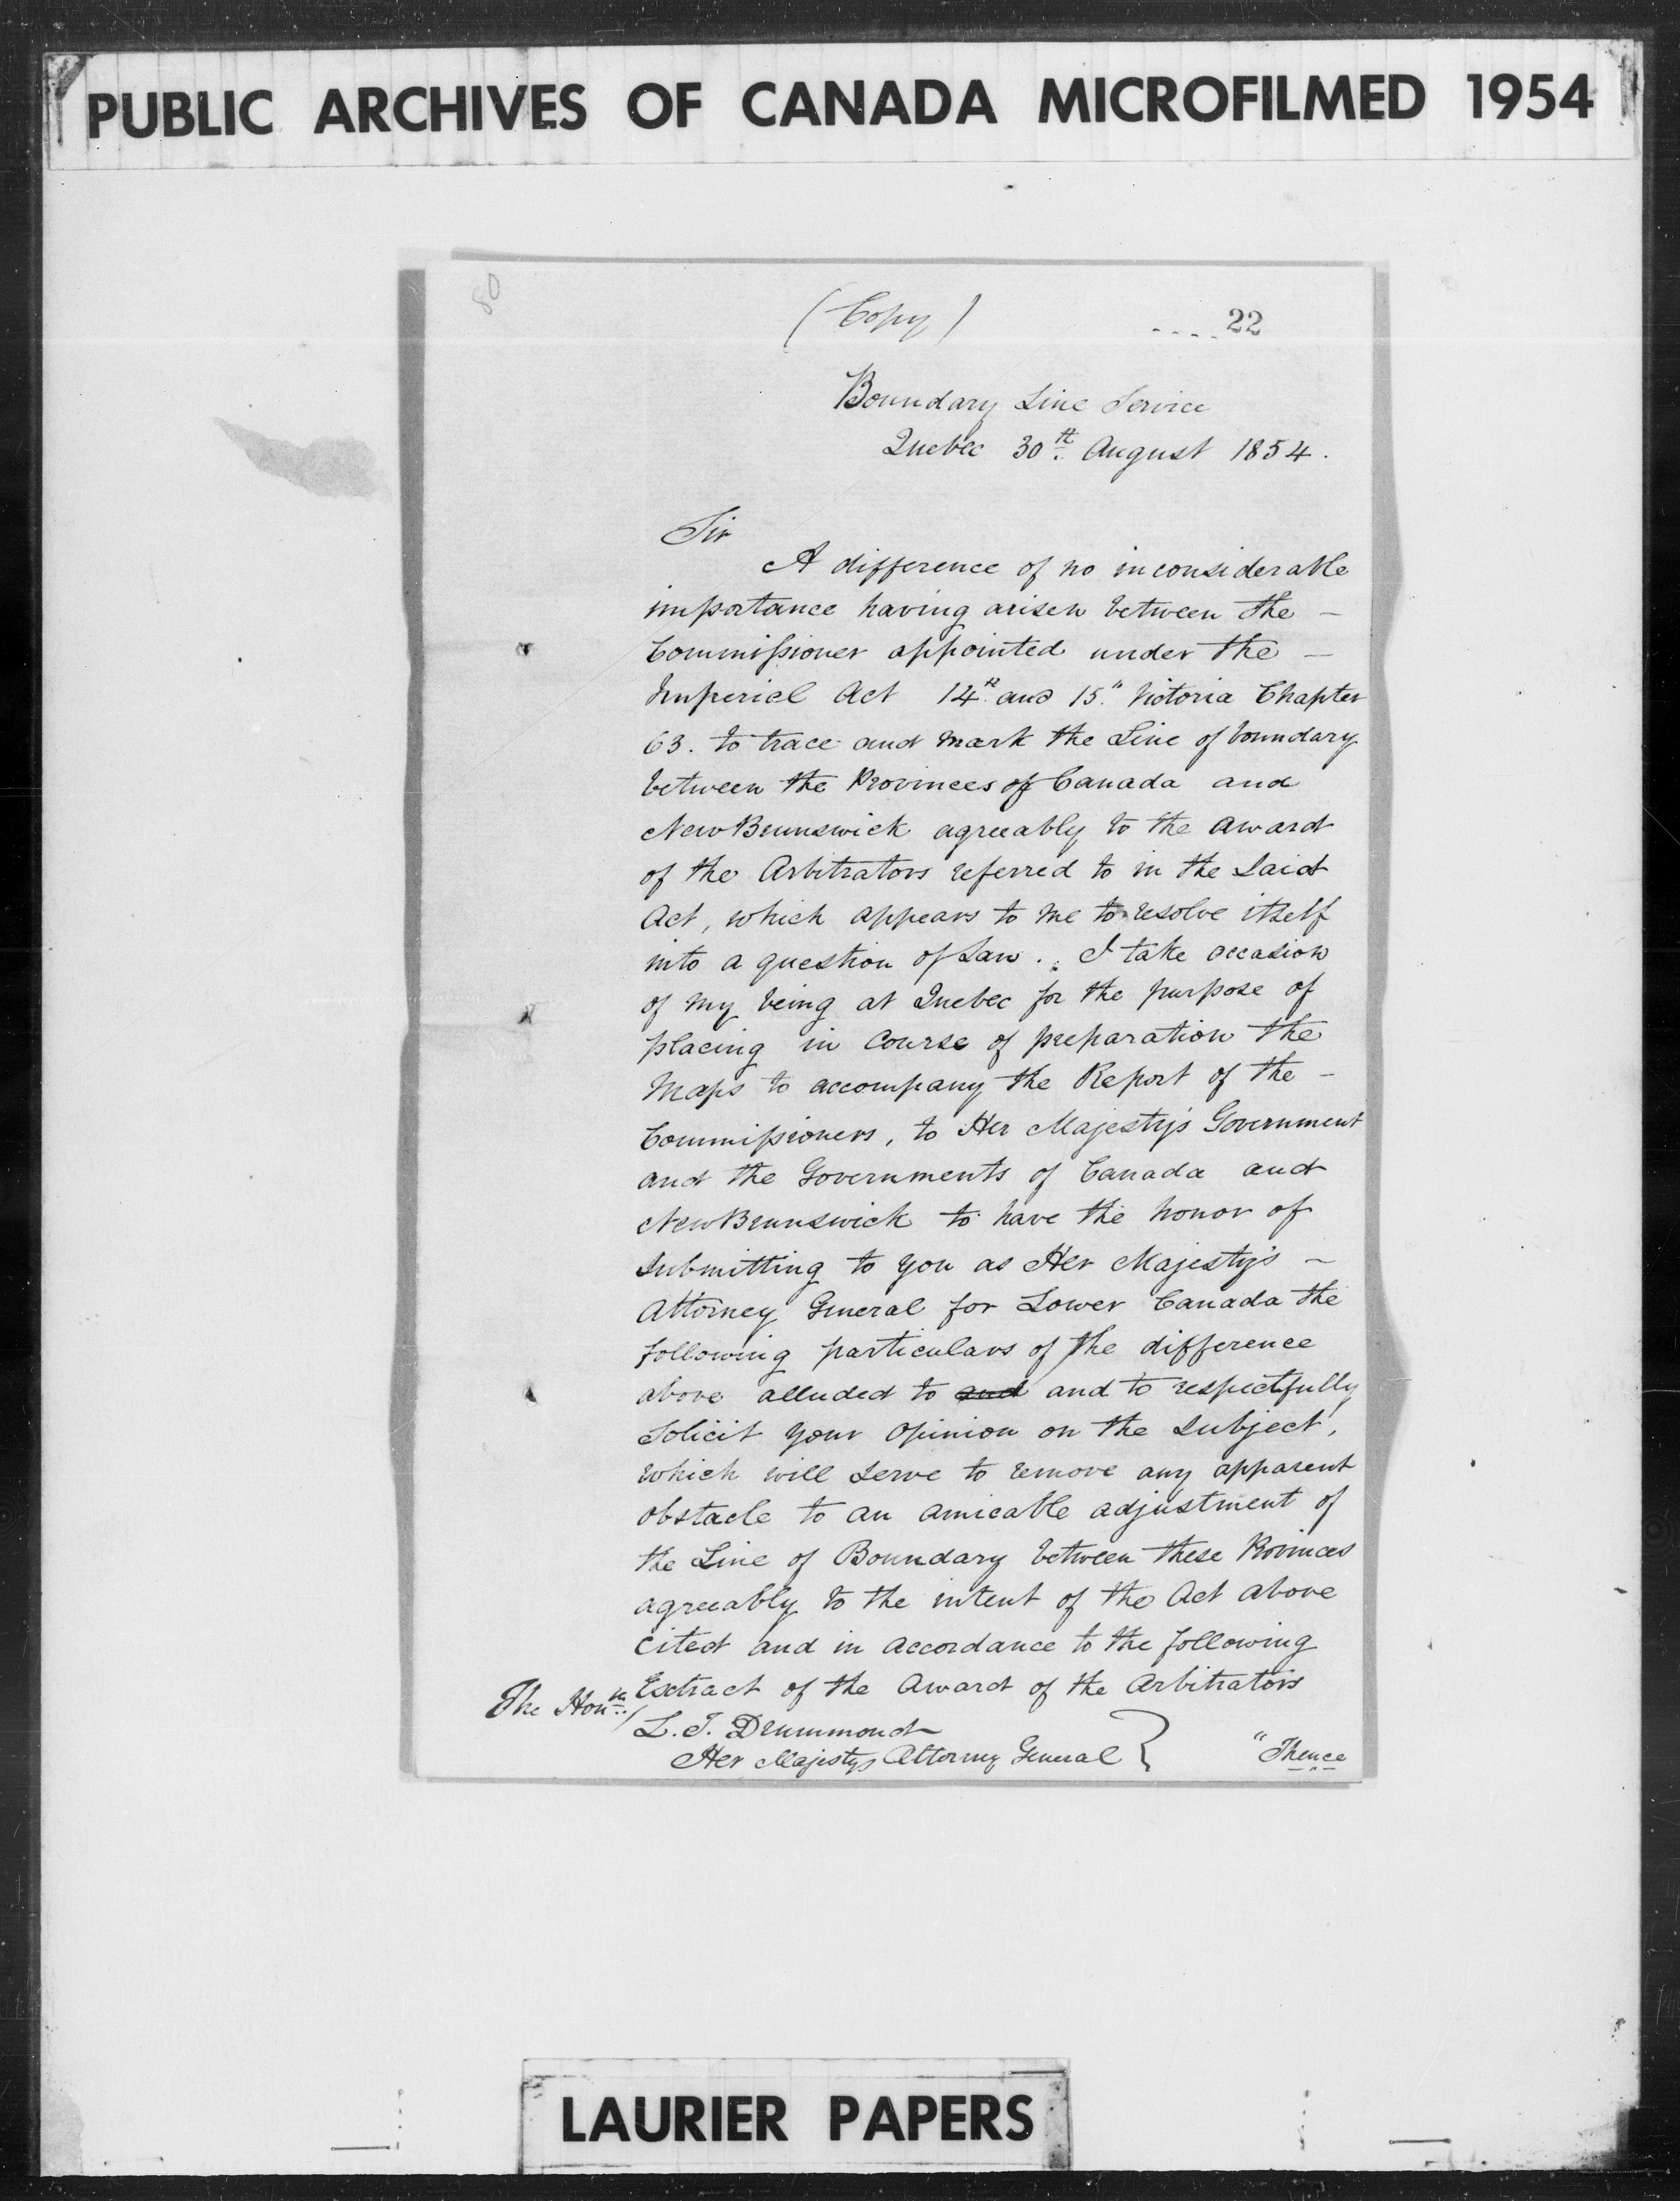 PUBLIC ARCHIVES OF CANADA MICROFILMED 1954
80
(Copy)
22
Boundary Line Service
Quebec 30th August 1854.
Sir
A difference of no inconsiderable
importance having arisen between the –
Commissioner appointed under the –
Imperial Act 14th and 15" Victoria Chapter
63. to trace and mark the Line of boundary
between the Provinces of Canada and
New Brunswick agreeably to the award
of the Arbitrators referred to in the Said
Act, which appears to me to resolve itself
into a question of Law. I take occasion
of my being at Quebec for the purpose of
placing in Course of preparation the
Maps to accompany the Report of the –
Commissioners, to Her Majesty's Government
and the Governments of Canada and
New Brunswick to have the honor of
Submitting to you as Her Majesty's –
Attorney General for Lower Canada the
following particulars of the difference
above alluded to and and to respectfully
Solicit your Opinion on the Subject,
which will Serve to remove any apparent
obstacle to an amicable adjustment of
the Line of Boundary between these Provinces
agreeably to the intent of the Act above
Cited and in accordance to the following
Extract of the Award of the Arbitrators
The Honble
L. T. Drummond
Her Majestys Attorney General }
"Thence
LAURIER PAPERS